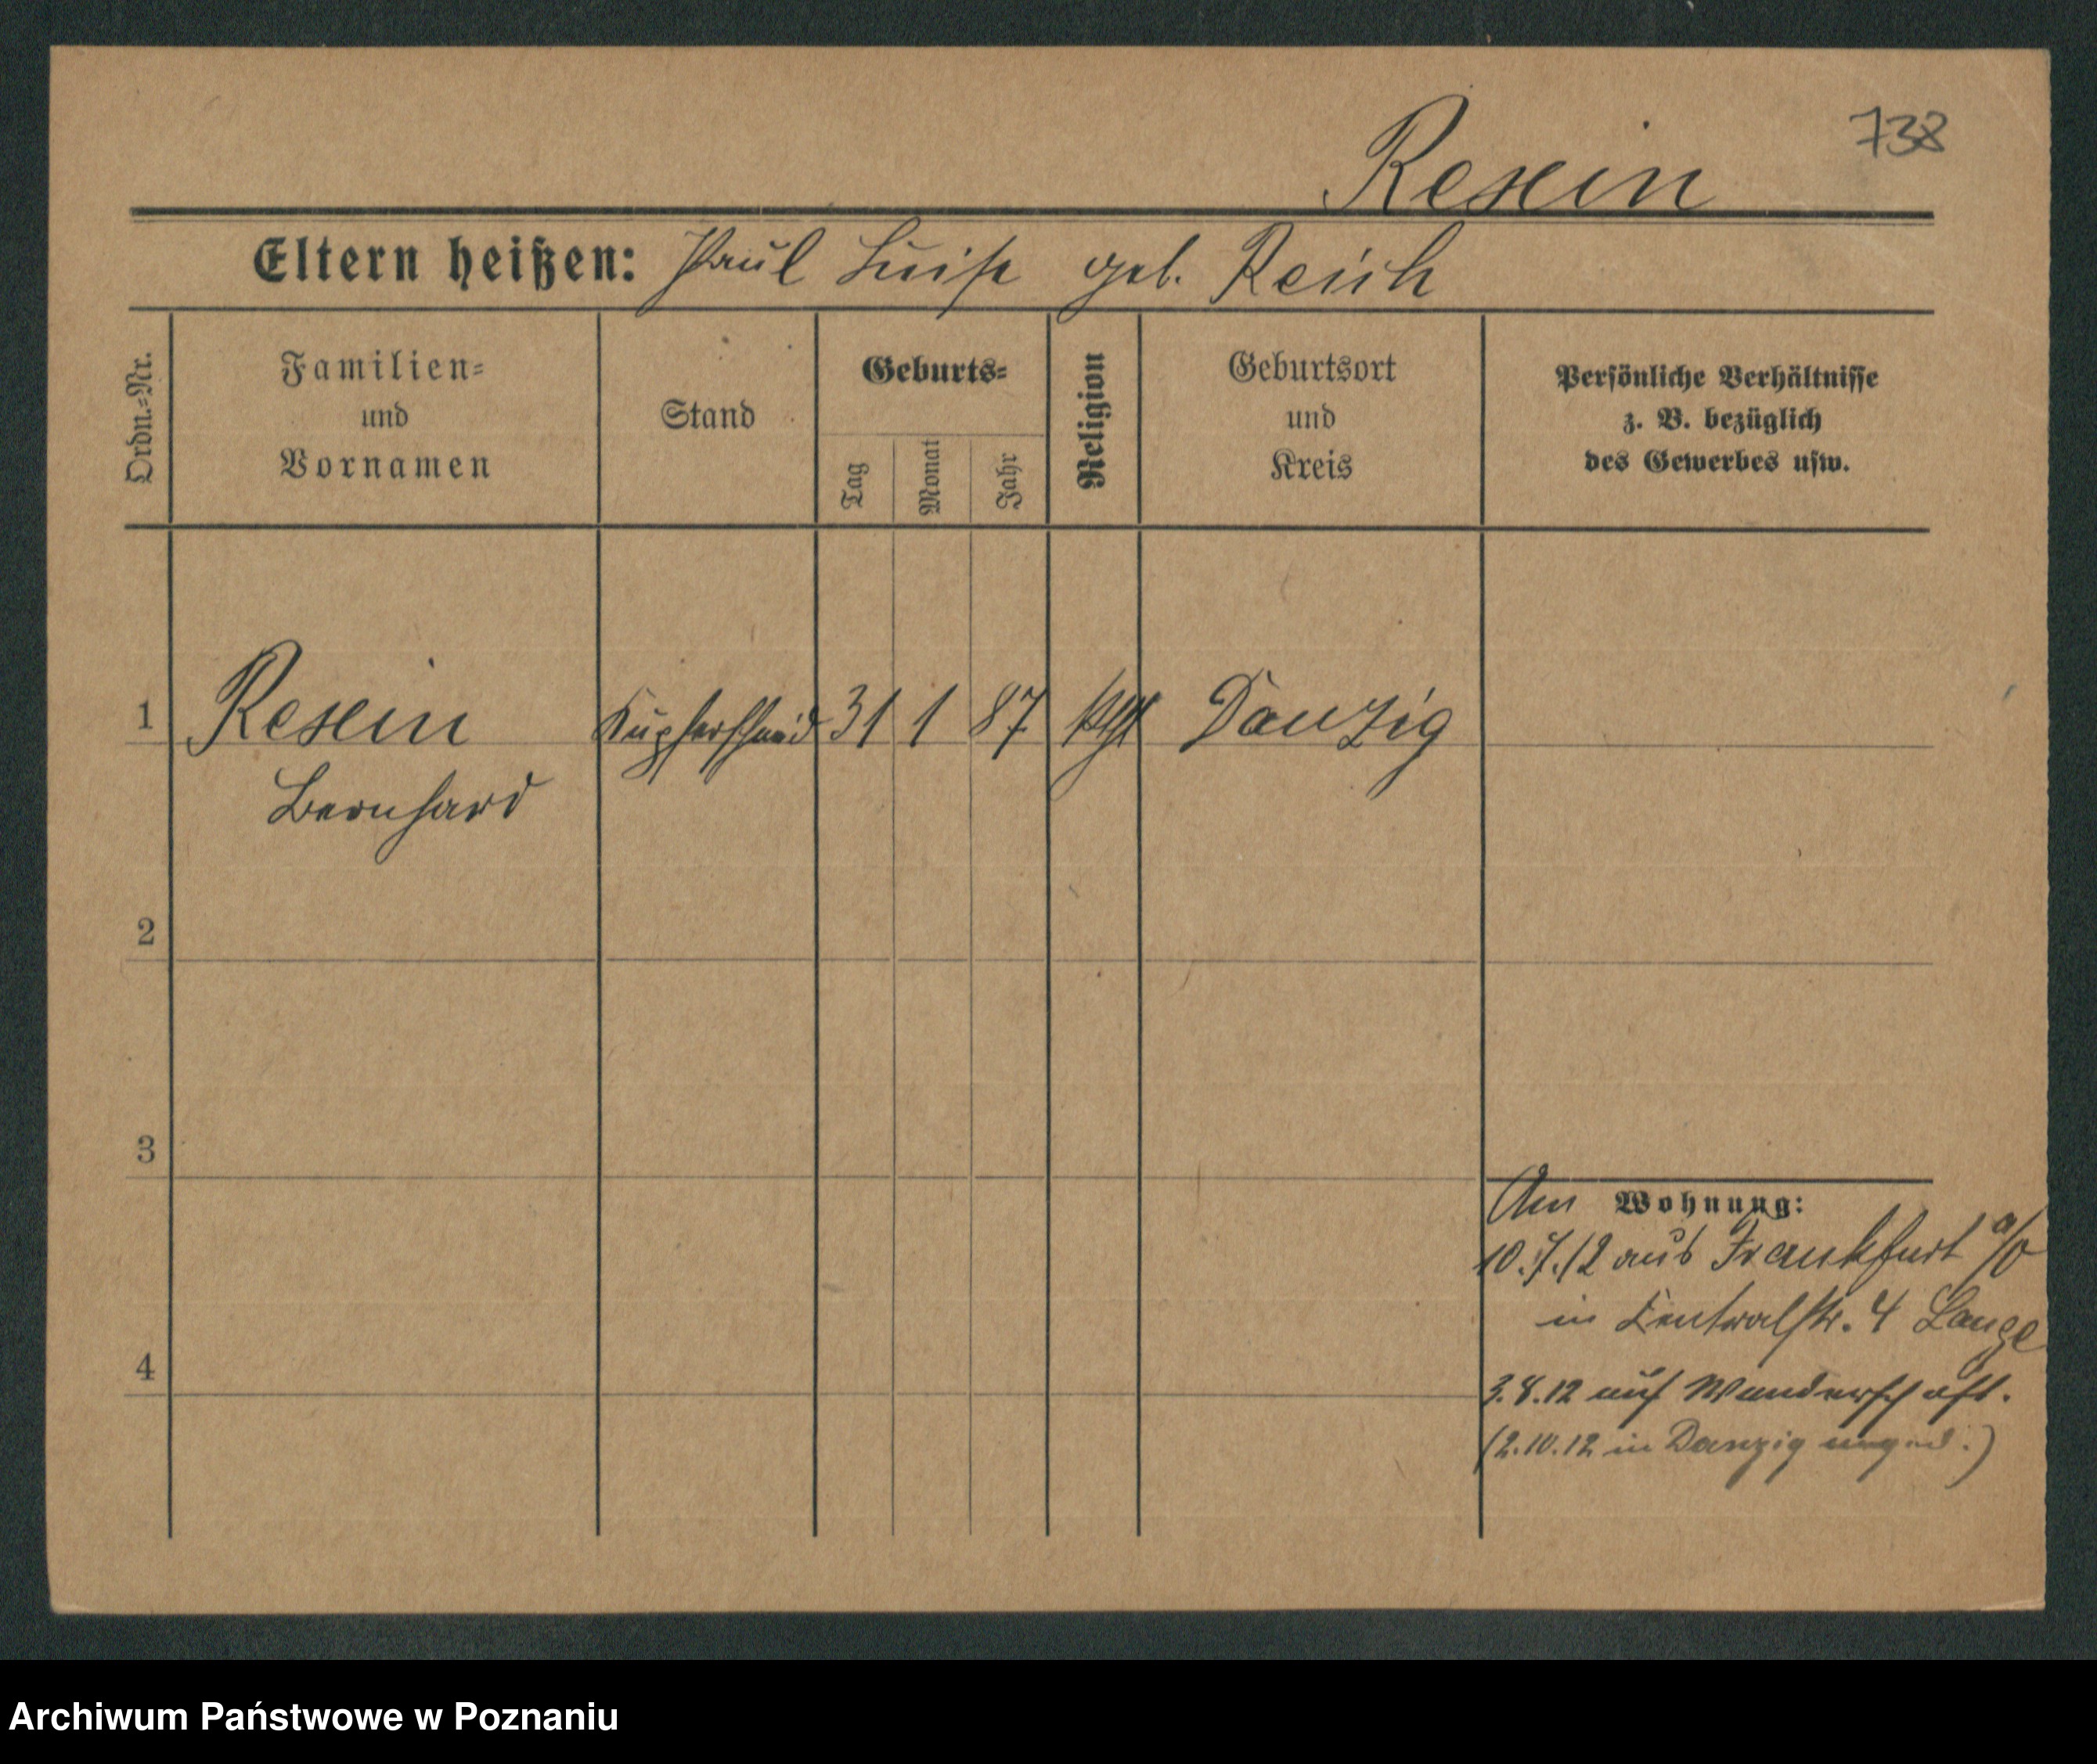 738
Resein
Eltern heißen: Paul Luise geb. Reich
Ordn.-Nr.
Familien-
und
Vornamen
Stand
Geburts-
Tag
Monat
Jahr
Religion
Geburtsort
und
Kreis
Persönliche Verhältnisse
z. B. bezüglich
des Gewerbes usw.
1 Resein Kupferschmid 31 1 87 kth Danzig
Bernhard
2
3
4
Am Wohnung:
10.7.12 aus Frankfurt a/O
in Centralstr. 4 Lange
3.8.12 auf Wanderschaft.
(2.10.12 in Danzig
Archiwum Państwowe w Poznaniu